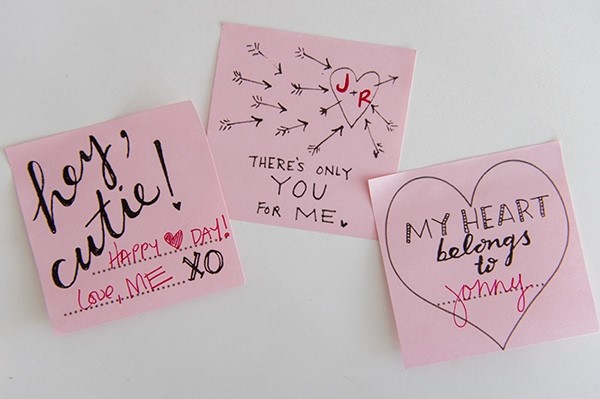 hey,
cutie!
HAPPY ♥ DAY!
Love, ME XO
J + R
THERE'S ONLY
YOU
FOR ME.
MY HEART
belongs
to
jonny